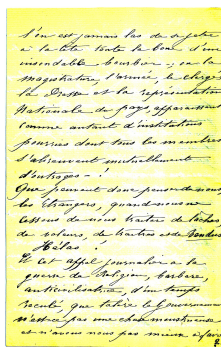 s'en est jamais las de se jeter
à la tête toute la boue d'une
insondable bourbier ; où la
magistrature, l'armée, le clergé
la Presse et la représentation
Nationale du pays, apparaissent
comme autant d'institutions
pourries dont tous les membres
s'abreuvent mutuellement
d'outrages - !
Que peuvent donc penser de nous,
les étrangers, quand nous ne
cessons de nous traiter de lâches,
de voleurs, de traîtres et de vendus
Hélas !
Et cet appel journalier à la
guerre de Religion, barbare,
anticivilisatrice, d'un temps
reculé, que tolère le gouvernement
n'est-ce pas une chose monstrueuse
et n'avons nous pas mieux à faire